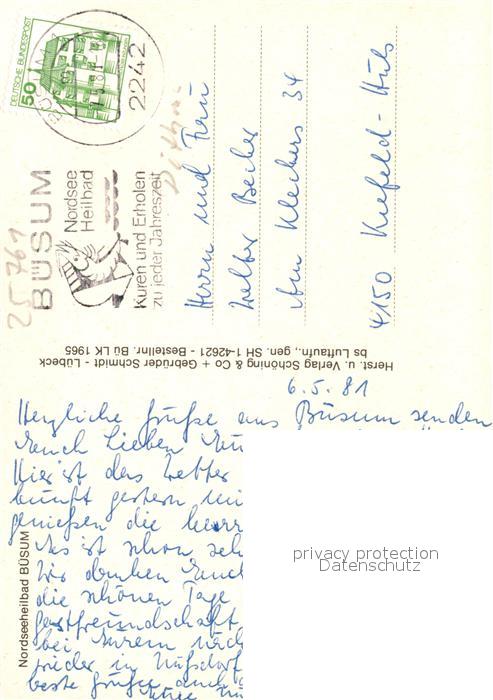 DEUTSCHE BUNDESPOST
50
2242
25761
BÜSUM
Nordsee
Heilbad
Kuren und Erholen
zu jeder Jahreszeit
Herrn und Frau
Walter Becker
Am Kleckers 34
4150 Krefeld-Hüls
Herst. u. Verlag Schöning & Co + Gebrüder Schmidt - Lübeck
bs Luftaufn., gen. SH 1-42621 - Bestellnr. Bü LK 1965
6.5.81
Herzliche Grüße aus Büsum senden
Euch Lieben
Hier ist das Wetter
gestern
genießen die herr
Es ist schon seh
Wir danken Euch
die schönen Tage
Gastfreundschaft
bei Eurem
wieder in Nußdorf
beste Grüße auch
Nordseeheilbad BÜSUM
privacy protection
Datenschutz